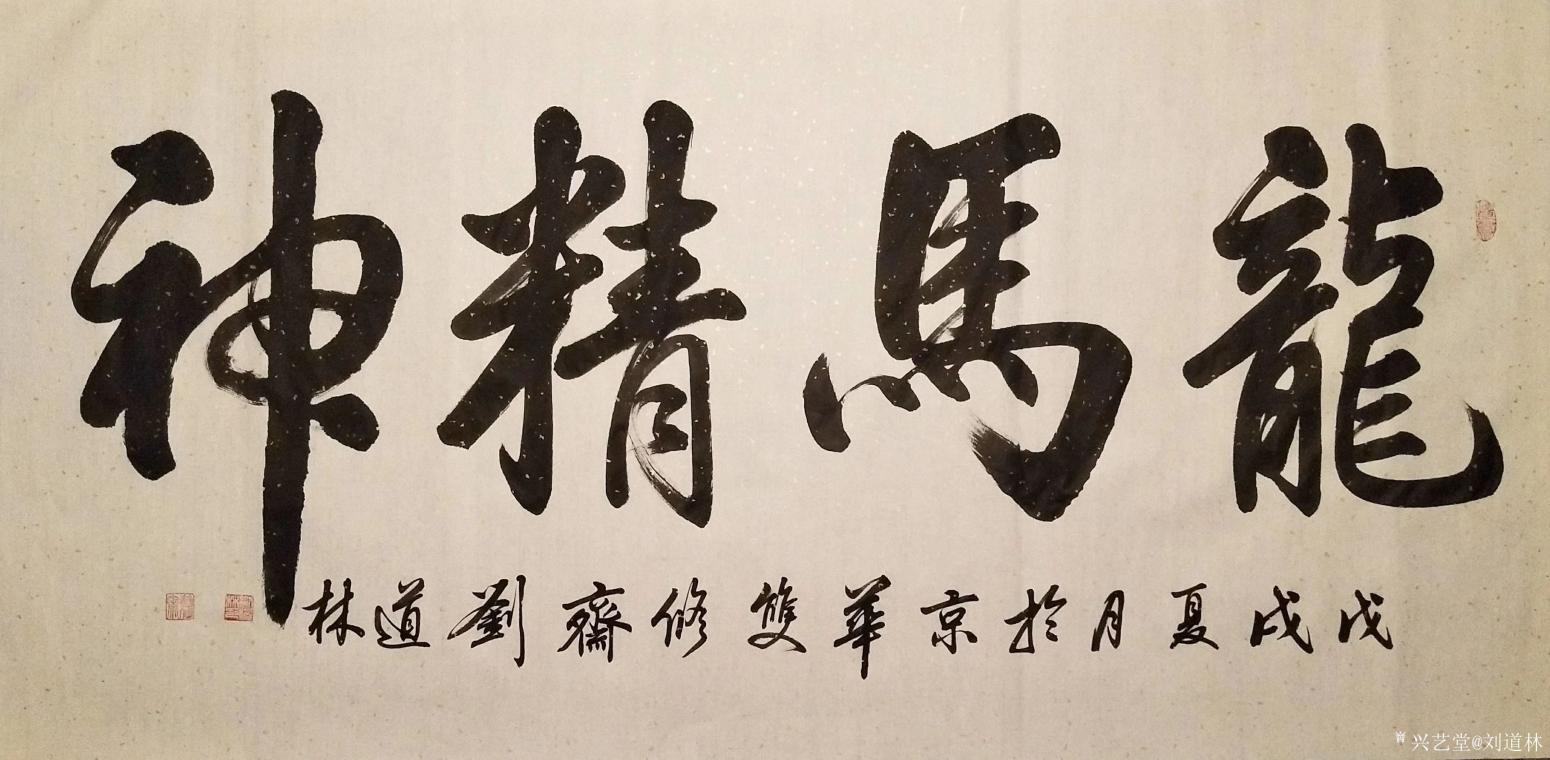 龍馬精神
戊戌夏月於京華雙修齋劉道林
兴艺堂@刘道林